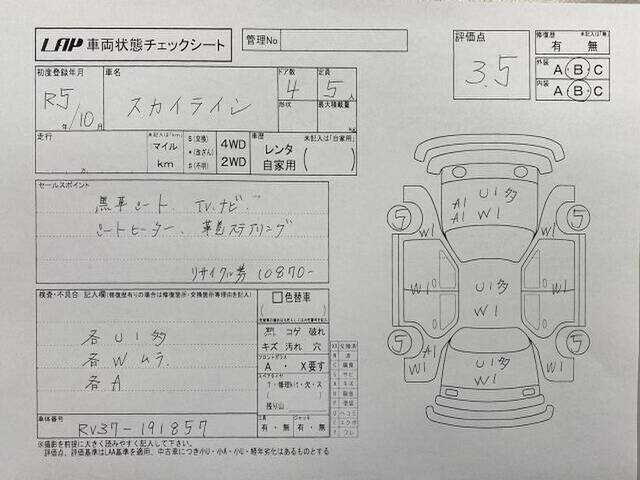 LAP 車両状態チェックシート
管理No
評価点
3.5
修復歴 未記入は「無」
有 無
外装 A・B・C
内装 A・B・C
初度登録年月
R5 年/10 月
車名
スカイライン
ドア数
4
定員
5人
形状
最大積載量
走行
未記入は「km」
マイル
km
$(交換)
*(改ざん)
#(不明)
4WD
2WD
車歴 未記入は「自家用」
レンタ
自家用
セールスポイント
黒革シート. TV.ナビ.
シートヒーター. 革巻ステアリング
リサイクル券 10870-
検査・不具合 記入欄(修復歴有りの場合は修復箇所・交換箇所等理由を記入)
各U1多
各Wムラ.
各A
色替車
コゲ 破れ
キズ 汚れ 穴
フロントガラス
A ・ X要す
スペアタイヤ
残り山
工具
有・無
ジャッキ
有・無
車体番号
RV37-191857
※撮影を前提に大きく読みやすく記入して下さい。
評価点、評価基準はLAA基準を適用、中古車につき小U・小A・小W・経年劣化はあるものとする
U1多
A1
A1
W1
5
5
W1
W1
W1
W1
U1多
W1
5
5
A1
W1
W1
U1多
W1